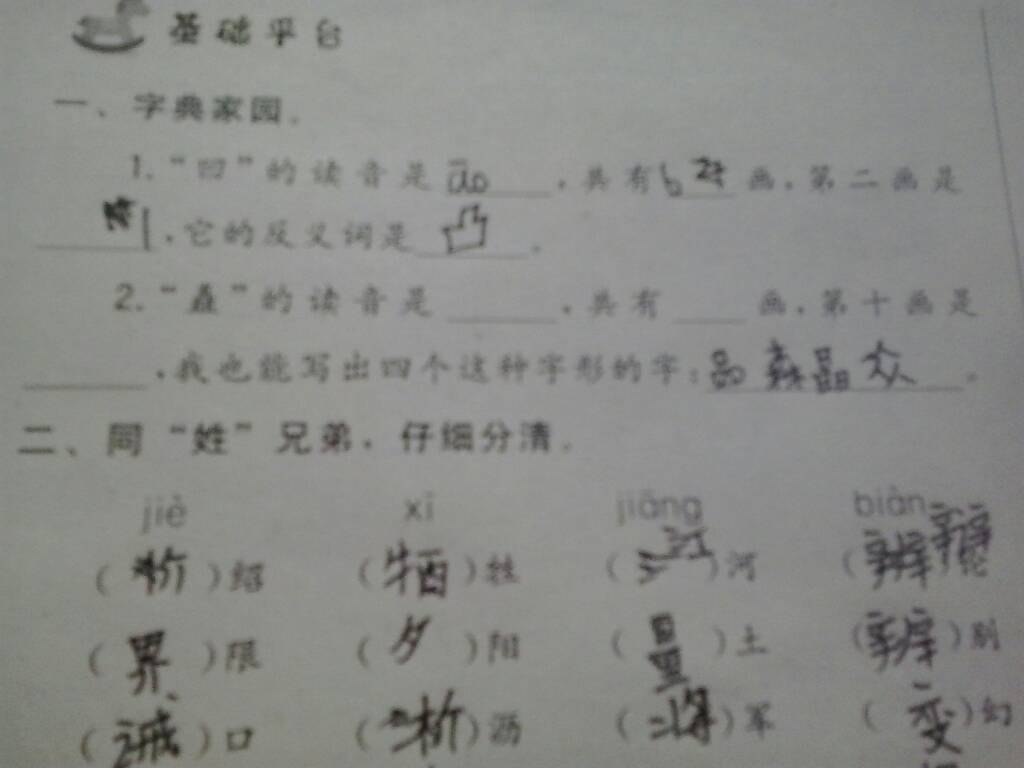 基础平台
一、字典家园。
1.“凹”的读音是āo,共有6画,第二画是
,它的反义词是凸。
2.“矗”的读音是____,共有____画,第十画是
____,我也能写出四个这种字形的字:品森晶众。
二、同“姓”兄弟,仔细分清。
jiè xī jiāng biàn
()绍 (牺)牲 (江)河 (辩)
(界)限 (夕)阳 ()土 (辨)别
(诫)口 (淅)沥 (将)军 (变)幻